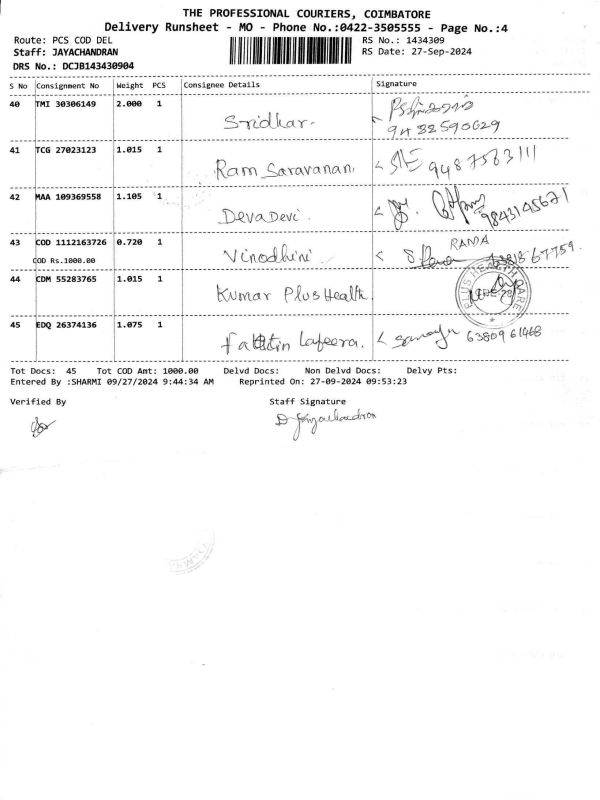 THE PROFESSIONAL COURIERS, COIMBATORE
Delivery Runsheet - MO - Phone No.:0422-3505555 - Page No.:4
Route: PCS COD DEL
RS No.: 1434309
Staff: JAYACHANDRAN
RS Date: 27-Sep-2024
DRS No.: DCJB143430904
S No Consignment No Weight PCS Consignee Details Signature
40 TMI 30306149 2.000 1 Sridhar.
9432590629
41 TCG 27023123 1.015 1 Ram Saravanan.
42 MAA 109369558 1.105 1 DevaDevi. 9843145671
43 COD 1112163726 0.720 1 Vinodhini. RAMA
COD Rs.1000.00
44 CDM 55283765 1.015 1 Kumar Plus Health. PLUS HEALTH CARE
45 EDQ 26374136 1.075 1 6380961468
Tot Docs: 45 Tot COD Amt: 1000.00 Delvd Docs: Non Delvd Docs: Delvy Pts:
Entered By :SHARMI 09/27/2024 9:44:34 AM Reprinted On: 27-09-2024 09:53:23
Verified By Staff Signature